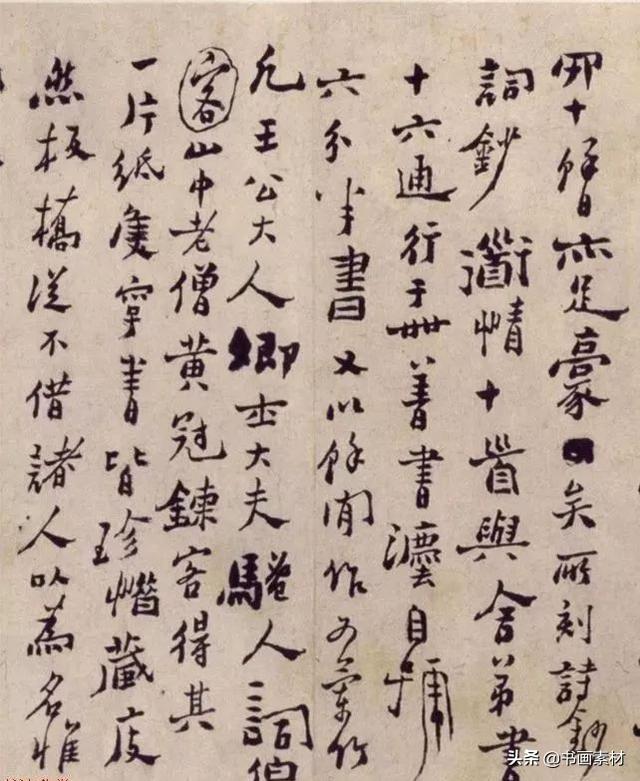 十餘亦足豪矣所刻詩鈔
詞鈔道情十首與舍弟書
十六通行于世善書法自號
六分半書又以餘閒作為蘭竹
凡王公大人卿士大夫騷人詞伯
客山中老僧黃冠鍊客得其
一片紙隻字書皆珍惜藏庋
然板橋從不借諸人以為名惟
头条 @书画素材